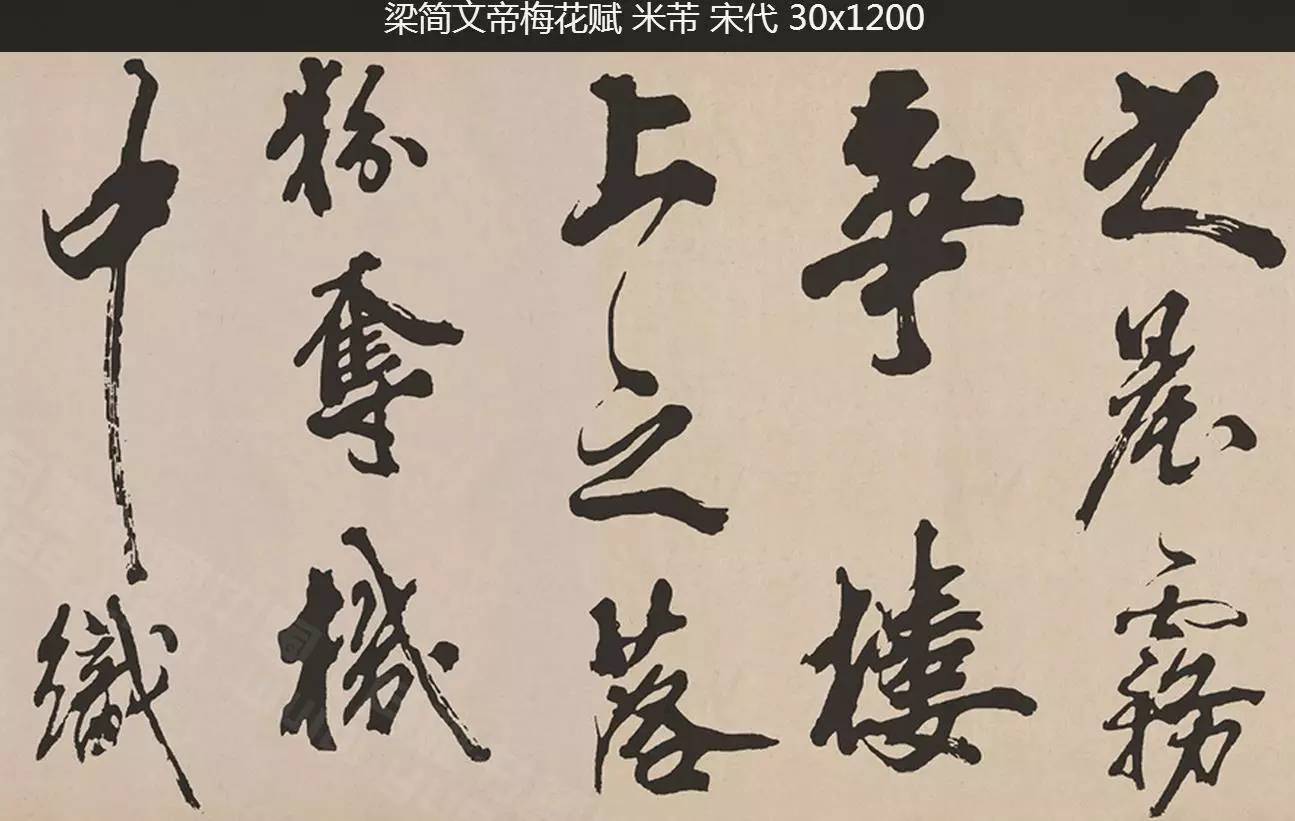 梁简文帝梅花赋 米芾 宋代 30x1200
之晨霧
華樓
上之落
粉奪機
中織